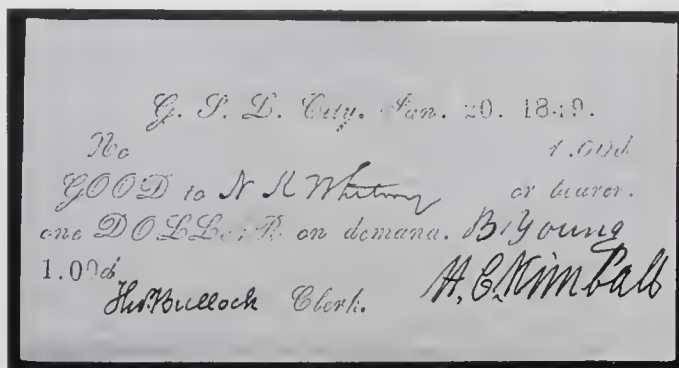 G. S. L. City. Jan. 20. 1849.
No 1.00d
GOOD to N K Whitney or bearer.
one DOLLaR on demand. B. Young
1.00d H. C. Kimball
Thos. Bullock Clerk.